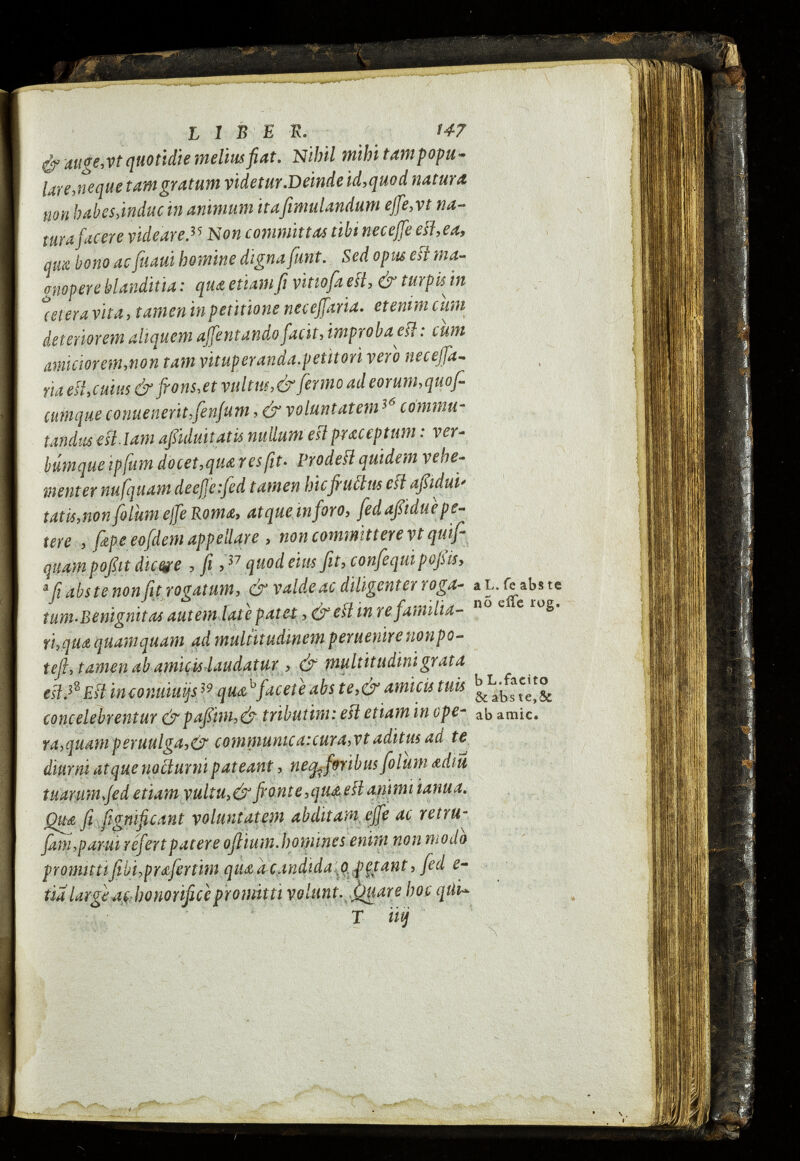 LIBER. 147
& auge,vt quotidie melius fiat. Nihil mihi tam popu-
lare,neque tam gratum videtur.Deinde id,quod natura
non habes,induc in animum ita simulandum esse,vt na-
tura facere videare.³⁵ Non committas tibi necesse est,ea,
quæ bono ac suaui homine digna sunt. Sed opus est ma-
gnopere blanditia: quæ etiam si vitiosa est, & turpis in
cetera vita, tamen in petitione necessaria. etenim cùm
deteriorem aliquem assentando facit, improba est: cùm
amiciorem,non tam vituperanda.petitori verò necessa-
ria est,cuius & frons,et vultus,& sermo ad eorum,quos-
cumque conuenerit,sensum, & voluntatem ³⁶ commu-
tandus est.Iam assiduitatis nullum est præceptum: ver-
búmque ipsum docet,quæ res sit. Prodest quidem vehe-
menter nusquam deesse:sed tamen hic fructus est assidui-
tatis,non solùm esse Romæ, atque in foro, sed assiduè pe-
tere , sæpe eosdem appellare , non committere vt quis-
quam possit dicere , si ,³⁷ quod eius sit, consequi possis,
ᵃ si abs te non sit rogatum, & valde ac diligenter roga-
tum.Benignitas autem latè patet, & est in re familia-
ri,quæ quamquam ad multitudinem peruenire non po-
test, tamen ab amicis laudatur , & multitudini grata
est.³⁸ Est in conuiuijs ³⁹ quæ ᵇ facetè abs te,& amicis tuis
concelebrentur & passim,& tributim: est etiam in ope-
ra,quam peruulga,& communica:cura,vt aditus ad te
diurni atque nocturni pateant, neq; foribus solùm ædiū
tuarum,sed etiam vultu,& fronte,quæ est animi ianua.
Quæ si significant voluntatem abditam esse ac retru-
sam,parui refert patere ostium.homines enim non modò
promitti sibi,præsertim quæ à candidato petant, sed e-
tiā largè ac honorificè promitti volunt. Quare hoc qui-
T iiij
a L. se abs te
nō esse rog.
b L.facito
& abs te,&
ab amic.